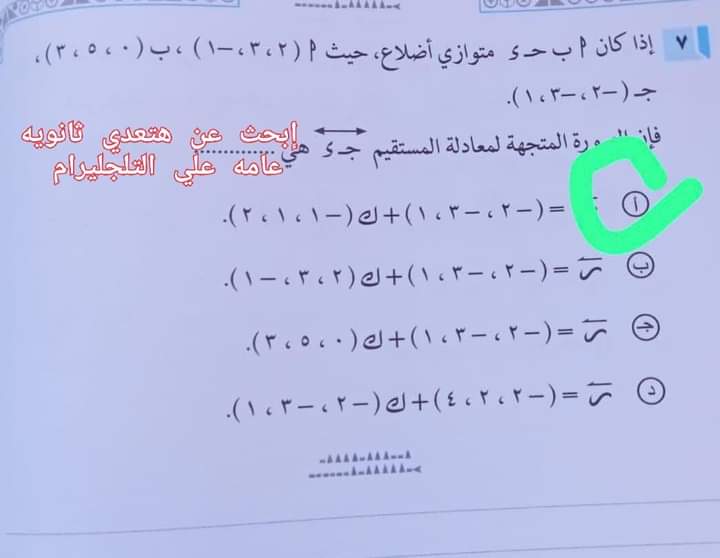 ٧ إذا كان ٢ ب حـ ء متوازي أضلاع، حيث ٢ (٢، ٣، -١)، ب (٠، ٥، ٣)،
جـ (-٢، -٣، ١).
فإن المتجهة لمعادلة المستقيم جـ ء هي ..........
إبحث عن هتعدي ثانويه
عامه علي التلجليرام
أ = (-٢، -٣، ١) + ك (-١، ١، ٢).
ب س = (-٢، -٣، ١) + ك (٢، ٣، -١).
جـ س = (-٢، -٣، ١) + ك (٠، ٥، ٣).
د س = (-٢، ٢، ٤) + ك (-٢، -٣، ١).